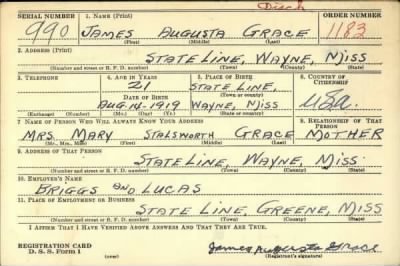 Disch
SERIAL NUMBER 1. NAME (Print) ORDER NUMBER
990 JAMES AUGUSTA GRACE 1182
(First) (Middle) (Last)
2. ADDRESS (Print)
STATE LINE, WAYNE, MISS
(Number and street or R. F. D. number) (Town) (County) (State)
3. TELEPHONE 4. AGE IN YEARS 5. PLACE OF BIRTH 6. COUNTRY OF CITIZENSHIP
21 STATE LINE,
DATE OF BIRTH (Town or county)
AUG.14-1919 WAYNE, MISS USA
(Exchange) (Number) (Mo.) (Day) (Yr.) (State or country)
7. NAME OF PERSON WHO WILL ALWAYS KNOW YOUR ADDRESS 8. RELATIONSHIP OF THAT PERSON
MRS. MARY STALSWORTH GRACE MOTHER
(Mr., Mrs., Miss) (First) (Middle) (Last)
9. ADDRESS OF THAT PERSON
STATE LINE, WAYNE, MISS.
(Number and street or R. F. D. number) (Town) (County) (State)
10. EMPLOYER'S NAME
BRIGGS AND LUCAS
11. PLACE OF EMPLOYMENT OR BUSINESS
STATE LINE, GREENE, MISS
(Number and street or R. F. D. number) (Town) (County) (State)
I AFFIRM THAT I HAVE VERIFIED ABOVE ANSWERS AND THAT THEY ARE TRUE.
REGISTRATION CARD
D. S. S. Form 1
James Augusta Grace
(Registrant's signature)